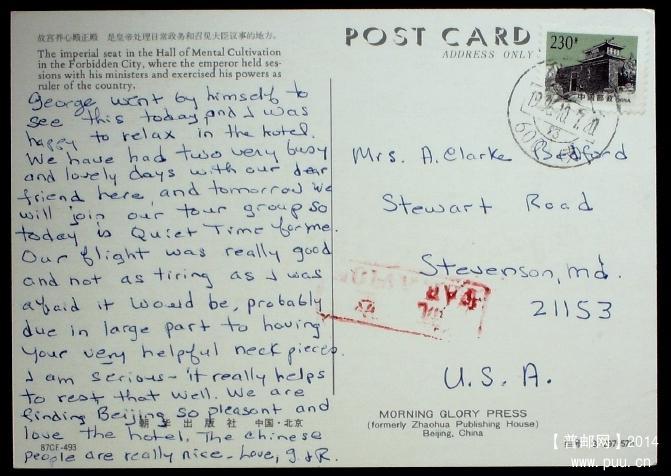 故宫养心殿正殿 是皇帝处理日常政务和召见大臣议事的地方。
The imperial seat in the Hall of Mental Cultivation
in the Forbidden City, where the emperor held ses-
sions with his ministers and exercised his powers as
ruler of the country.
George went by himself to
see this today and I was
happy to relax in the hotel.
We have had two very busy
and lovely days with our dear
friend here, and tomorrow we
will join our tour group so
today is Quiet Time for me.
Our flight was really good
and not as tiring as I was
afraid it would be, probably
due in large part to having
your very helpful neck pieces.
I am serious - it really helps
to rest that well. We are
finding Beijing so pleasant and
love the hotel. The Chinese
people are really nice. Love, G & R.
朝华出版社 中国·北京
87CF-493
POST CARD
ADDRESS ONLY
230
中国邮政 CHINA
Mrs. A. Clarke Bedford
Stewart Road
Stevenson, Md.
21153
U.S.A.
AIR
MORNING GLORY PRESS
(formerly Zhaohua Publishing House)
Beijing, China
【普邮网】2014
www.puu.cn